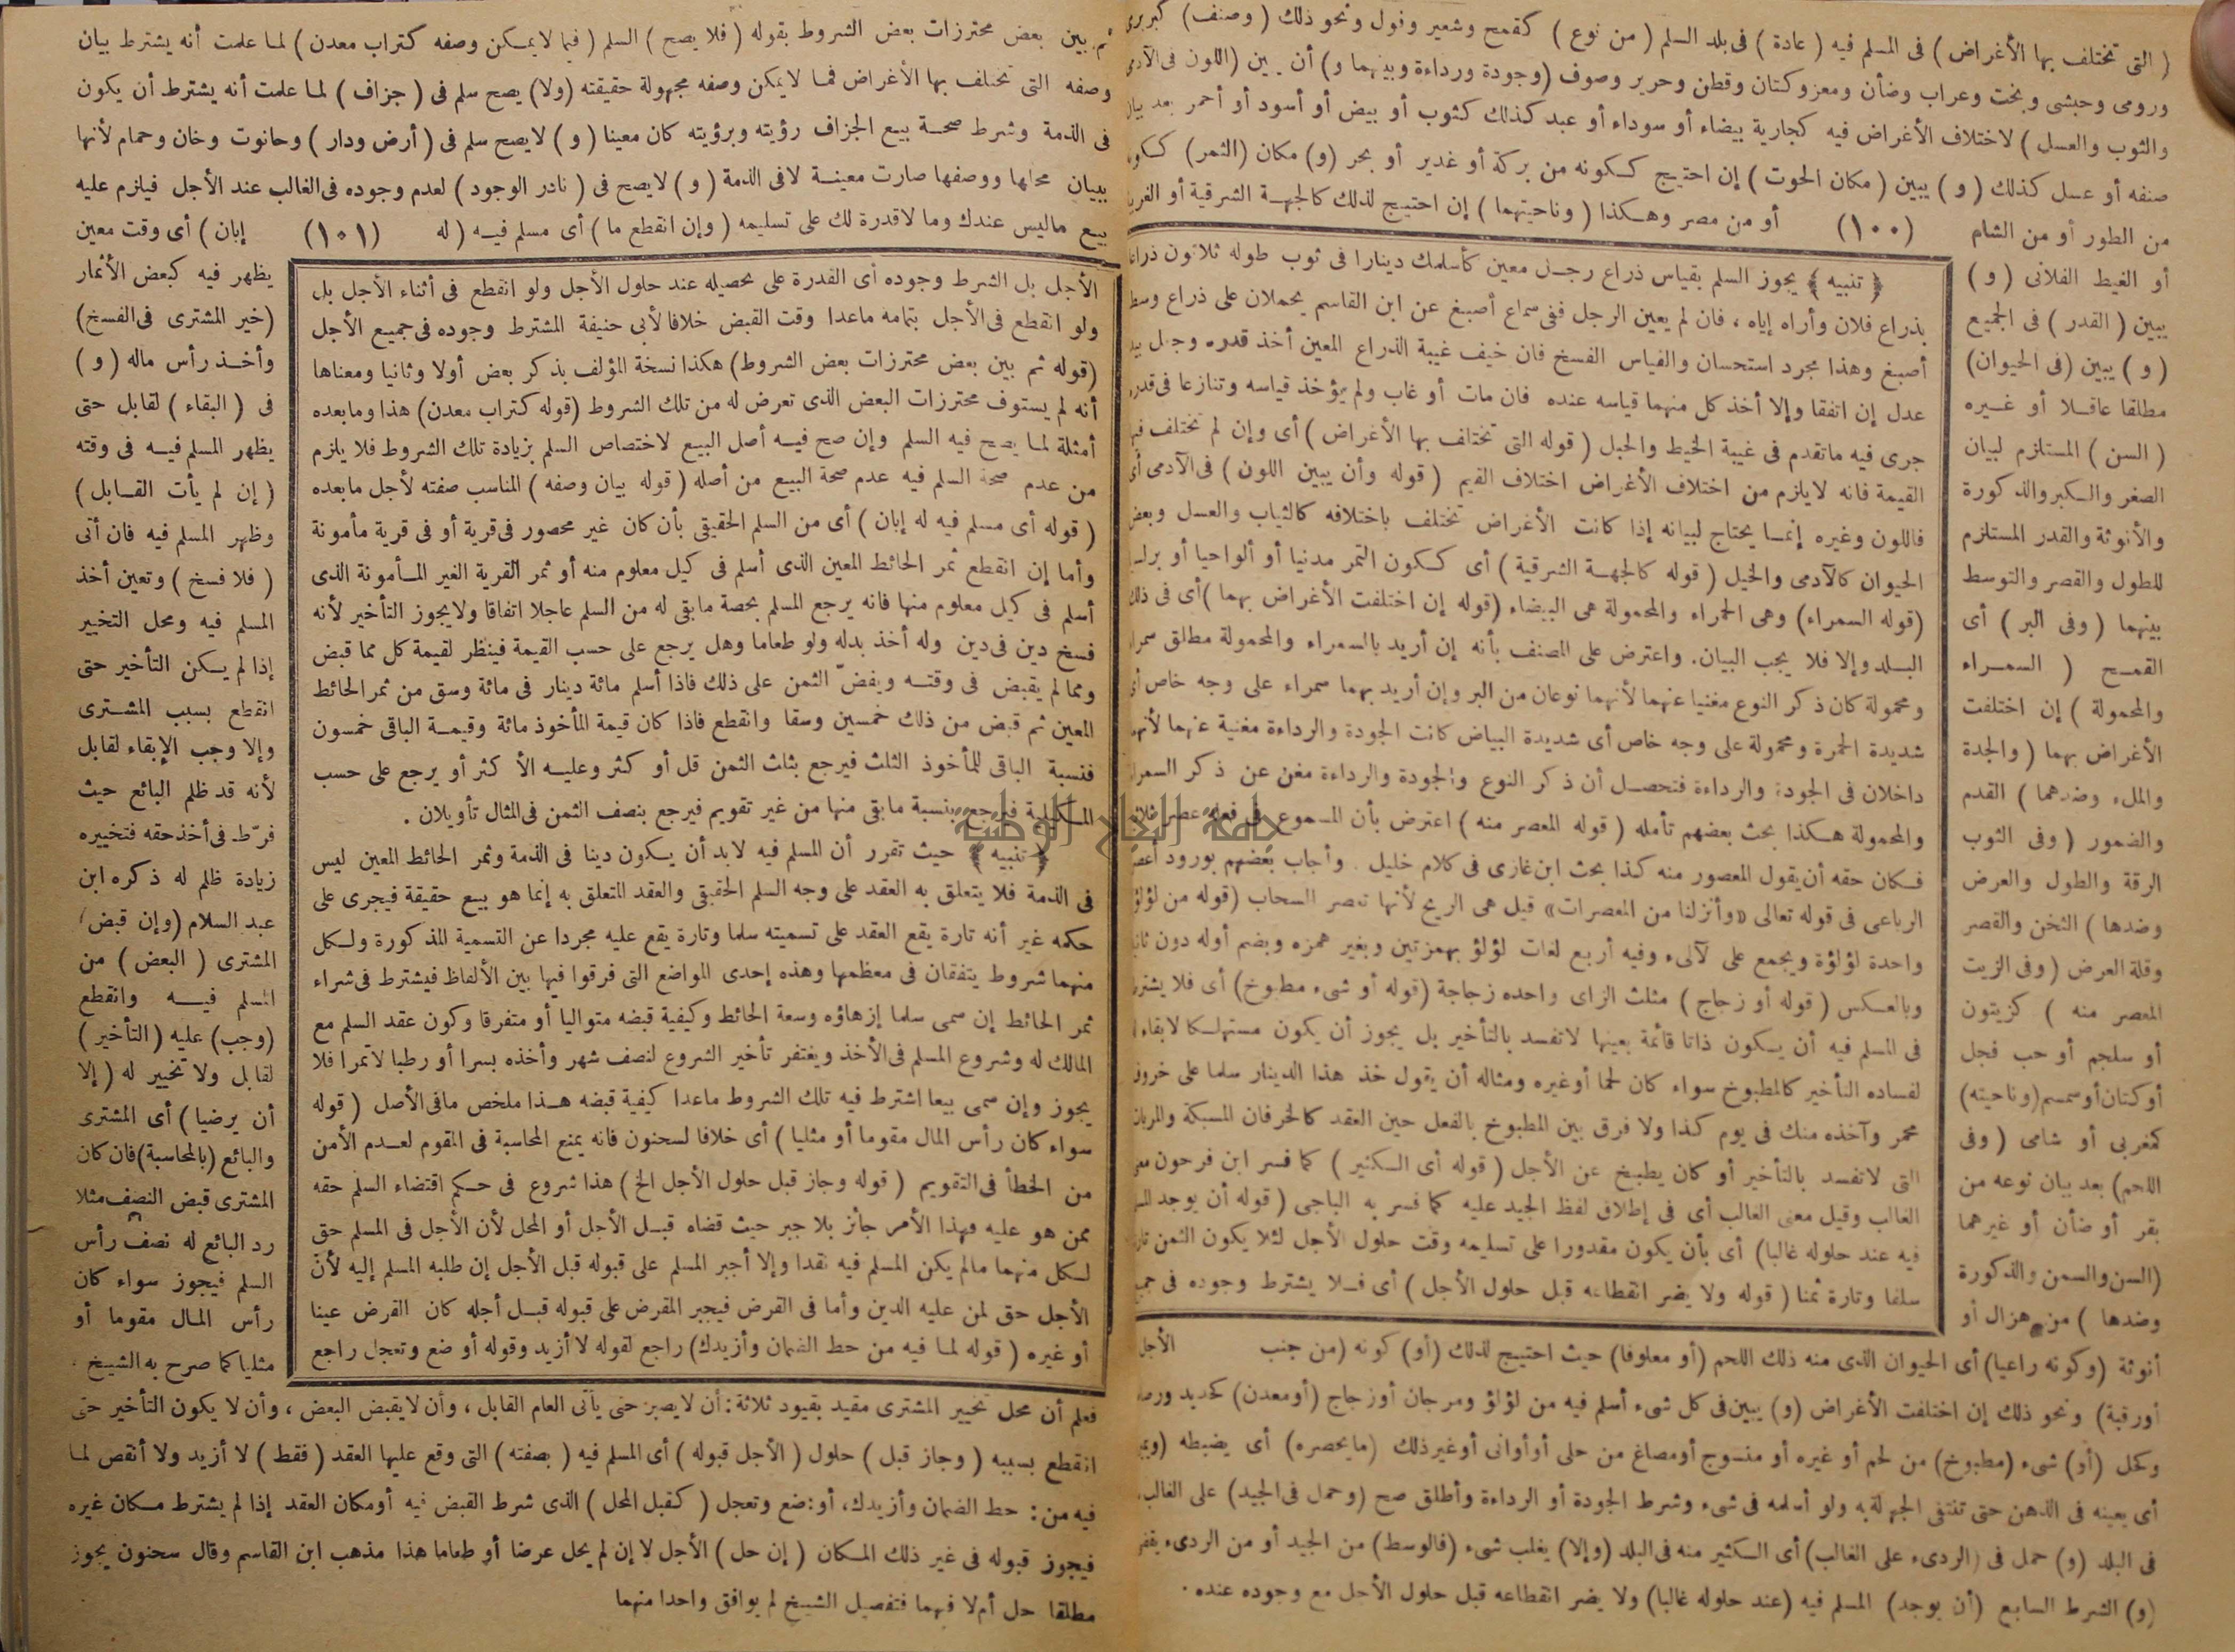 ( التى تختلف بها الأغراض ) فى المسلم فيه ( عادة ) فى بلد السلم ( من نوع ) كقمح وشعير وفول ونحو ذلك ( وصنف ) كبربرى
ورومى وحبشى وبخت وعراب وضأن ومعز وكتان وقطن وحرير وصوف (وجودة ورداءة وبينهما و) أن يبين (اللون فى الآدمى
والثوب والعسل ) لاختلاف الأغراض فيه كجارية بيضاء أو سوداء أو عبد كذلك كثوب أو بيض أو أسود أو أحمر بعد بيان
صنفه أو عسل كذلك ( و ) يبين ( مكان الحوت ) إن احتيج ككونه من بركة أو غدير أو بحر (و) مكان (الثمر) ككونه
من الطور أو من الشام (١٠٠) أو من مصر وهكذا ( وناحيتهما ) إن احتيج لذلك كالجهة الشرقية أو الغربية
أو الغيط الفلانى ( و )
يبين ( القدر ) فى الجميع
( و ) يبين (فى الحيوان)
مطلقا عاقلا أو غيره
( السن ) المستلزم لبيان
الصغر والكبر والذكورة
والأنوثة والقدر المستلزم
للطول والقصر والتوسط
بينهما ( وفى البر ) أى
القمح ( السمراء
والمحمولة ) إن اختلفت
الأغراض بهما ( والجدة
والملء وضدهما ) القدم
والضمور ( وفى الثوب
الرقة والطول والعرض
وضدها ) الثخن والقصر
وقلة العرض ( وفى الزيت
المعصر منه ) كزيتون
أو سلجم أو حب فجل
أو كتان أو سمسم (وناحيته)
كمغربى أو شامى ( وفى
اللحم) بعد بيان نوعه من
بقر أو ضأن أو غيرهما
(السن والسمن والذكورة
وضدها ) من هزال أو
أنوثة (وكونه راعيا) أى الحيوان الذى منه ذلك اللحم (أو معلوفا) حيث احتيج لذلك (أو) كونه (من جنب
أو رقبة) ونحو ذلك إن اختلفت الأغراض (و) يبين فى كل شىء أسلم فيه من لؤلؤ ومرجان أو زجاج (أو معدن) كحديد
وكحل (أو) شىء (مطبوخ) من لحم أو غيره أو منسوج أو مصاغ من حلى أو أوانى أو غير ذلك (ما يحصره) أى يضبطه
أى يعينه فى الذهن حتى تنتفى الجهالة به ولو أسلمه فى شىء وشرط الجودة أو الرداءة وأطلق صح (وحمل فى الجيد) على الغالب
فى البلد (و) حمل فى (الردىء على الغالب) أى الكثير منه فى البلد (وإلا) يغلب شىء (فالوسط) من الجيد أو من الردىء
(و) الشرط السابع (أن يوجد) المسلم فيه (عند حلوله غالبا) ولا يضر انقطاعه قبل حلول الأجل مع وجوده عنده .
﴿ تنبيه ﴾ يجوز السلم بقياس ذراع رجل معين كأسلمك دينارا فى ثوب طوله ثلاثون ذراعا
بذراع فلان وأراه إياه ، فان لم يعين الرجل ففى سماع أصبغ عن ابن القاسم يحملان على ذراع وسط
أصبغ وهذا مجرد استحسان والقياس الفسخ فان خيف غيبة الذراع المعين أخذ قدره وجعل بيد
عدل إن اتفقا وإلا أخذ كل منهما قياسه عنده فان مات أو غاب ولم يؤخذ قياسه وتنازعا فى قدره
جرى فيه ما تقدم فى غيبة الخيط والحبل ( قوله التى تختلف بها الأغراض ) أى وإن لم تختلف فيها
القيمة فانه لا يلزم من اختلاف الأغراض اختلاف القيم ( قوله وأن يبين اللون ) فى الآدمى أى
فاللون وغيره إنما يحتاج لبيانه إذا كانت الأغراض تختلف باختلافه كالثياب والعسل وبعض
الحيوان كالآدمى والخيل ( قوله كالجهة الشرقية ) أى ككون التمر مدنيا أو ألواحيا أو
(قوله السمراء) وهى الحمراء والمحمولة هى البيضاء (قوله إن اختلفت الأغراض بهما ) أى فى ذلك
البلد وإلا فلا يجب البيان. واعترض على المصنف بأنه إن أريد بالسمراء والمحمولة مطلق سمراء
ومحمولة كان ذكر النوع مغنيا عنهما لأنهما نوعان من البر وإن أريد بهما سمراء على وجه خاص أى
شديدة الحمرة ومحمولة على وجه خاص أى شديدة البياض كانت الجودة والرداءة مغنية عنهما لأنهما
داخلان فى الجودة والرداءة فتحصل أن ذكر النوع والجودة والرداءة مغن عن ذكر السمراء
والمحمولة هكذا بحث بعضهم تأمله ( قوله المعصر منه ) اعترض بأن المسموع فى فعله عصر ثلاثى
فكان حقه أن يقول المعصور منه كذا بحث ابن غازى فى كلام خليل . وأجاب بعضهم بورود أعصر
الرباعى فى قوله تعالى «وأنزلنا من المعصرات» قيل هى الريح لأنها تعصر السحاب (قوله من لؤلؤ)
واحدة لؤلؤة ويجمع على لآلىء وفيه أربع لغات لؤلؤ بهمزتين وبغير همزه وبضم أوله دون ثانيه
وبالعكس ( قوله أو زجاج ) مثلث الزاى واحده زجاجة (قوله أو شىء مطبوخ) أى فلا يشترط
فى المسلم فيه أن يكون ذاتا قائمة بعينها لا تفسد بالتأخير بل يجوز أن يكون مستهلكا لا بقاء له
لفساده التأخير كالمطبوخ سواء كان لحما أو غيره ومثاله أن يقول خذ هذا الدينار سلما على خروف
محمر وآخذه منك فى يوم كذا ولا فرق بين المطبوخ بالفعل حين العقد كالخرفان المسبكة
التى لا تفسد بالتأخير أو كان يطبخ عن الأجل ( قوله أى الكثير ) كما فسر ابن فرحون
الغالب وقيل معنى الغالب أى فى إطلاق لفظ الجيد عليه كما فسر به الباجى ( قوله أن يوجد المسلم
فيه عند حلوله غالبا) أى بأن يكون مقدورا على تسليمه وقت حلول الأجل لئلا يكون الثمن تارة
سلفا وتارة ثمنا ( قوله ولا يضر انقطاعه قبل حلول الأجل ) أى فلا يشترط وجوده فى جميع
الأجل
ثم بين بعض محترزات بعض الشروط بقوله ( فلا يصح ) السلم ( فيما لا يمكن وصفه كتراب معدن ) لما علمت أنه يشترط بيان
وصفه التى تختلف بها الأغراض فما لا يمكن وصفه مجهولة حقيقته (ولا) يصح سلم فى ( جزاف ) لما علمت أنه يشترط أن يكون
فى الذمة وشرط صحة بيع الجزاف رؤيته وبرؤيته كان معينا ( و ) لا يصح سلم فى ( أرض ودار ) وحانوت وخان وحمام لأنها
ببيان محلها ووصفها صارت معينة لا فى الذمة ( و ) لا يصح فى ( نادر الوجود ) لعدم وجوده فى الغالب عند الأجل فيلزم عليه
بيع ما ليس عندك وما لا قدرة لك على تسليمه ( وإن انقطع ما ) أى مسلم فيه ( له (١٠١) إبان ) أى وقت معين
يظهر فيه كبعض الأثمار
(خير المشترى فى الفسخ)
وأخذ رأس ماله ( و )
فى ( البقاء ) لقابل حتى
يظهر المسلم فيه فى وقته
( إن لم يأت القابل )
وظهر المسلم فيه فان أتى
( فلا فسخ ) وتعين أخذ
المسلم فيه ومحل التخيير
إذا لم يكن التأخير حتى
انقطع بسبب المشترى
وإلا وجب الإبقاء لقابل
لأنه قد ظلم البائع حيث
فرّط فى أخذ حقه فتخييره
زيادة ظلم له ذكره ابن
عبد السلام (وإن قبض)
المشترى ( البعض ) من
المسلم فيه وانقطع
(وجب) عليه (التأخير )
لقابل ولا تخيير له ( إلا
أن يرضيا ) أى المشترى
والبائع (بالمحاسبة) فان كان
المشترى قبض النصف مثلا
رد البائع له نصف رأس
السلم فيجوز سواء كان
رأس المال مقوما أو
مثليا كما صرح به الشيخ .
فعلم أن محل تخيير المشترى مقيد بقيود ثلاثة : أن لا يصبر حتى يأتى العام القابل ، وأن لا يقبض البعض ، وأن لا يكون التأخير حتى
انقطع بسببه ( وجاز قبل ) حلول ( الأجل قبوله ) أى المسلم فيه ( بصفته ) التى وقع عليها العقد ( فقط ) لا أزيد ولا أنقص لما
فيه من : حط الضمان وأزيدك، أو : ضع وتعجل ( كقبل المحل ) الذى شرط القبض فيه أو مكان العقد إذا لم يشترط مكان غيره
فيجوز قبوله فى غير ذلك المكان ( إن حل ) الأجل لا إن لم يحل عرضا أو طعاما هذا مذهب ابن القاسم وقال سحنون يجوز
مطلقا حل أم لا فيهما فتفصيل الشيخ لم يوافق واحدا منهما
الأجل بل الشرط وجوده أى القدرة على تحصيله عند حلول الأجل ولو انقطع فى أثناء الأجل بل
ولو انقطع فى الأجل بتمامه ما عدا وقت القبض خلافا لأبى حنيفة المشترط وجوده فى جميع الأجل
(قوله ثم بين بعض محترزات بعض الشروط) هكذا نسخة المؤلف بذكر بعض أولا وثانيا ومعناها
أنه لم يستوف محترزات البعض الذى تعرض له من تلك الشروط (قوله كتراب معدن) هذا وما بعده
أمثلة لما يصح فيه السلم وإن صح فيه أصل البيع لاختصاص السلم بزيادة تلك الشروط فلا يلزم
من عدم صحة السلم فيه عدم صحة البيع من أصله ( قوله بيان وصفه ) المناسب صفته لأجل ما بعده
( قوله أى مسلم فيه له إبان ) أى من السلم الحقيقى بأن كان غير محصور فى قرية أو فى قرية مأمونة
وأما إن انقطع ثمر الحائط المعين الذى أسلم فى كيل معلوم منه أو ثمر القرية الغير المأمونة الذى
أسلم فى كيل معلوم منها فانه يرجع المسلم بحصة ما بقى له من السلم عاجلا اتفاقا ولا يجوز التأخير لأنه
فسخ دين فى دين وله أخذ بدله ولو طعاما وهل يرجع على حسب القيمة فينظر لقيمة كل مما قبض
ومما لم يقبض فى وقته ويفضّ الثمن على ذلك فاذا أسلم مائة دينار فى مائة وسق من ثمر الحائط
المعين ثم قبض من ذلك خمسين وسقا وانقطع فاذا كان قيمة المأخوذ مائة وقيمة الباقى خمسون
فنسبة الباقى للمأخوذ الثلث فيرجع بثلث الثمن قل أو كثر وعليه الأكثر أو يرجع على حسب
المكيلية فيرجع بنسبة ما بقى منها من غير تقويم فيرجع بنصف الثمن فى المثال تأويلان .
﴿ تنبيه ﴾ حيث تقرر أن المسلم فيه لا بد أن يكون دينا فى الذمة وثمر الحائط المعين ليس
فى الذمة فلا يتعلق به العقد على وجه السلم الحقيقى والعقد المتعلق به إنما هو بيع حقيقة فيجرى على
حكمه غير أنه تارة يقع العقد على تسميته سلما وتارة يقع عليه مجردا عن التسمية المذكورة ولكل
منهما شروط يتفقان فى معظمها وهذه إحدى المواضع التى فرقوا فيها بين الألفاظ فيشترط فى شراء
ثمر الحائط إن سمى سلما إزهاؤه وسعة الحائط وكيفية قبضه متواليا أو متفرقا وكون عقد السلم مع
المالك له وشروع المسلم فى الأخذ ويغتفر تأخير الشروع لنصف شهر وأخذه بسرا أو رطبا لا تمرا فلا
يجوز وإن سمى بيعا اشترط فيه تلك الشروط ما عدا كيفية قبضه هذا ملخص ما فى الأصل ( قوله
سواء كان رأس المال مقوما أو مثليا ) أى خلافا لسحنون فانه يمنع المحاسبة فى المقوم لعدم الأمن
من الخطأ فى التقويم ( قوله وجاز قبل حلول الأجل الخ ) هذا شروع فى حكم اقتضاء السلم حقه
ممن هو عليه فهذا الأمر جائز بلا جبر حيث قضاه قبل الأجل أو المحل لأن الأجل فى المسلم حق
لكل منهما ما لم يكن المسلم فيه نقدا وإلا أجبر المسلم على قبوله قبل الأجل إن طلبه المسلم إليه لأن
الأجل حق لمن عليه الدين وأما فى القرض فيجبر المقرض على قبوله قبل أجله كان القرض عينا
أو غيره ( قوله لما فيه من حط الضمان وأزيدك) راجع لقوله لا أزيد وقوله أو ضع وتعجل راجع
جامعة النجاح الوطنية